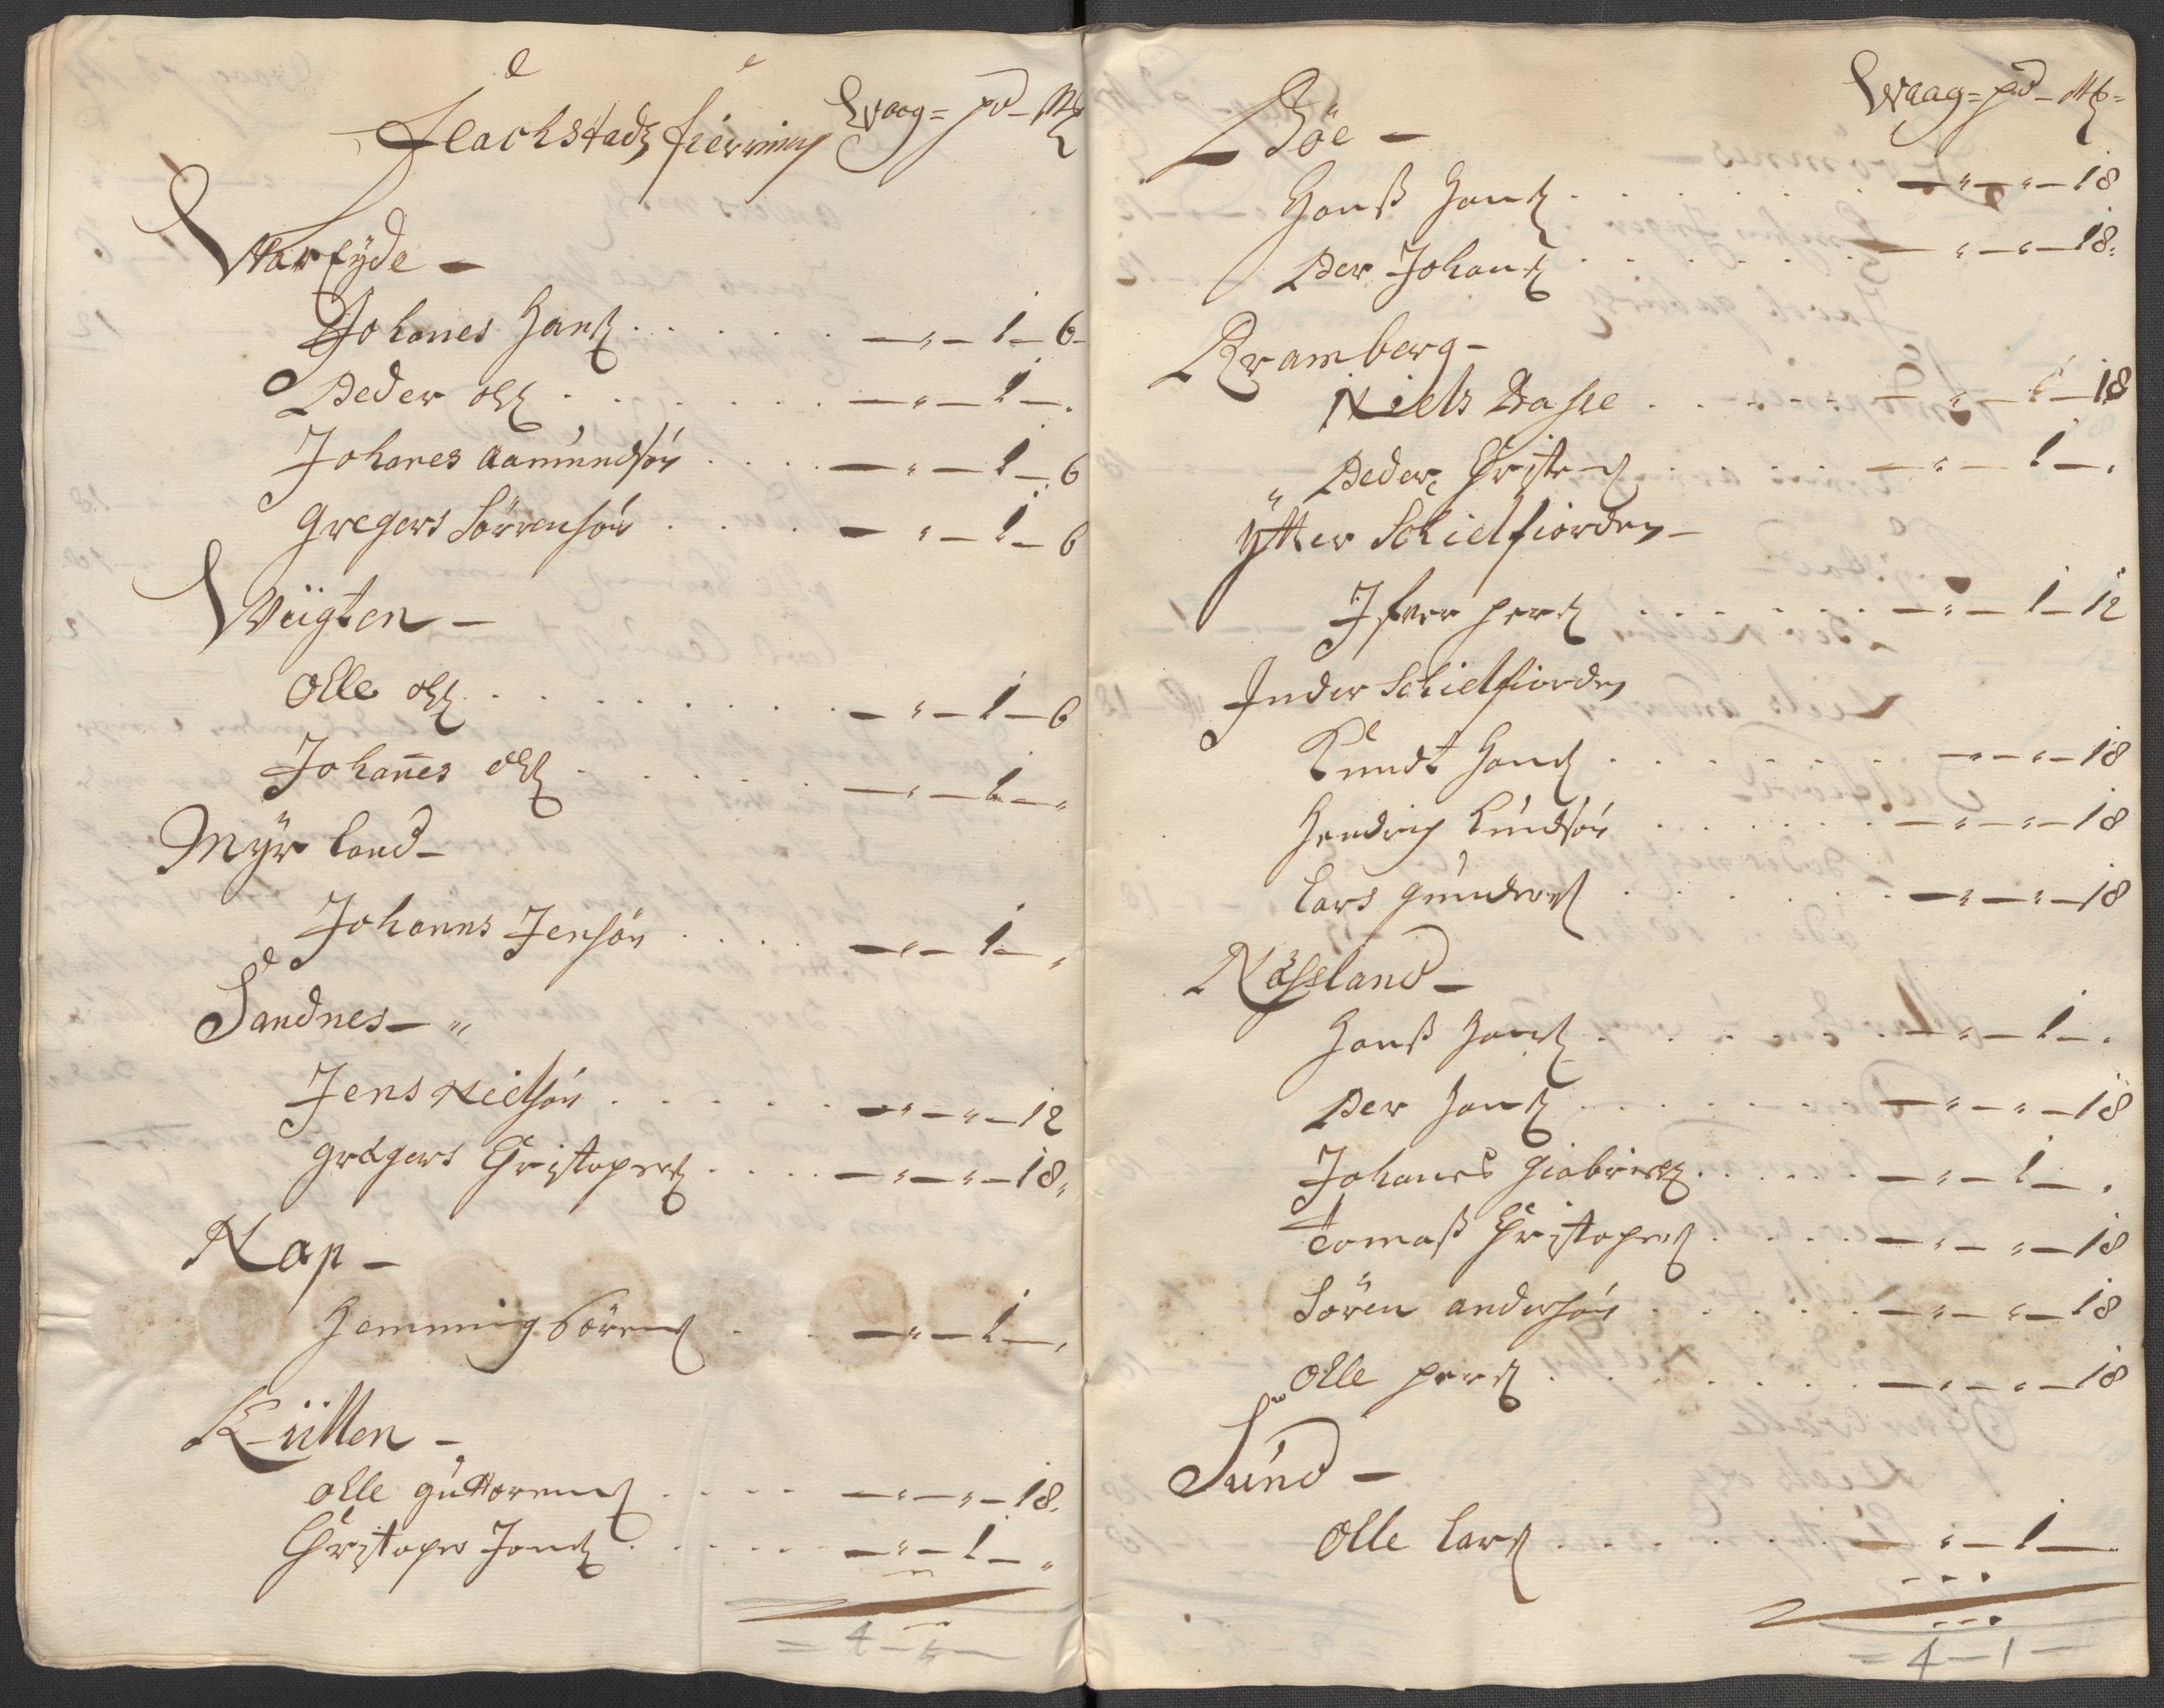 Flachstadz fierring Waag= pd – Mk
Warfyde –
Johanes Hanß . . . . . — „ — 1 — 6
Peder olß . . . . . . — „ — 1 — .
Johanes Aamundsøn . . . . — „ — 1 — 6
Gregers Sørrensøn . . . . — „ — 1 — 6
Wiigten –
Olle olß . . . . . . . . — „ — 1 — 6
Johan̄es olß . . . . . . — „ — 1 — „
Myrland –
Johanns Jensøn . . . . — „ — 1 — „
Sandnes – „
Jens Nielsøn . . . . . — „ — „ — 12
gregers Christopherß . . . . — „ — „ — 18
Nap –
Hemming Sörenß . . . — „ — 1 — „
Kiilten –
olle guttormß . . . . — „ — „ — 18
Christopher Jonß . . . . . — „ — 1 — „
= 4 –
Waag= pd – Mk
Böe –
Hanß Hanß . . . . . . — „ — „ — 18
Per Johanß . . . . . . — „ — „ — 18
Bramberg –
Niels Dasse . . . . . — „ — 1 — 18
Peder Christenß . . . . . — „ — 1 — „
ytter Schielfiorden –
Ifver perß . . . . . . — „ — 1 — 12
Inder Schielfiorden
Knudt Hanß . . . . . . . — „ — „ — 18
Hendrich Knudsøn . . . . . . — „ — „ — 18
Lars gunderß . . . . . . — „ — „ — 18
Næssland –
Hanß Hanß . . . . . . — „ — 1 — .
Per Hanß . . . . . . . — „ — „ — 18
Johanes Giabrielß . . . . . — „ — 1 — „
Tomaß Christopherß . . . . — „ — „ — 18
Sören andersøn . . . . . — „ — „ — 18
Olle perß . . . . . . . — „ — „ — 18
Sund –
Olle Larß . . . . . . — „ — 1 —
= 4 – 1 –